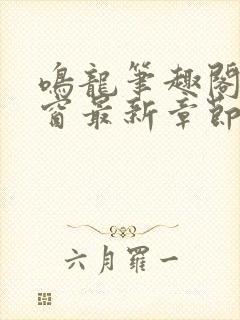 鳴龍筆趣閣
窗最新章節
六月羅一